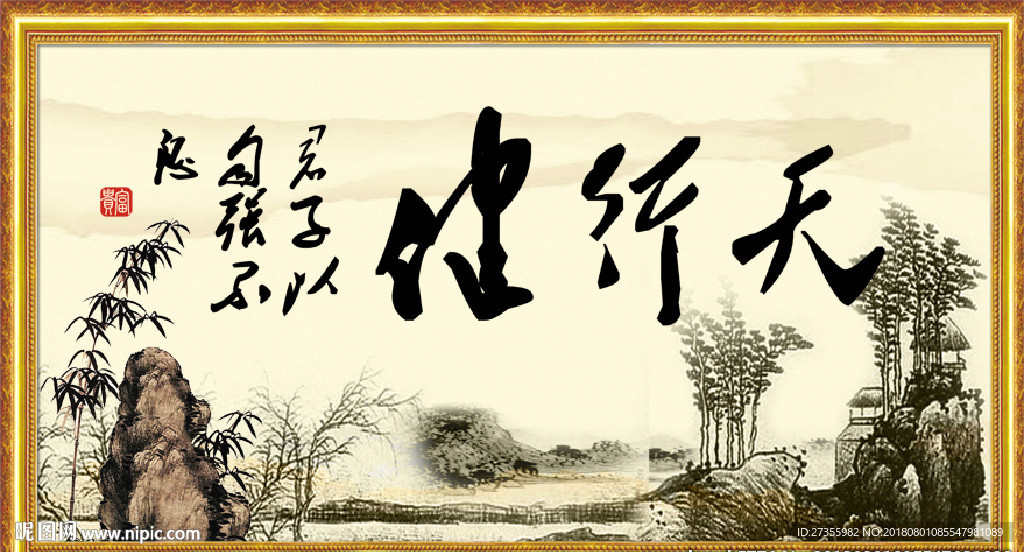 天行健
君子以
自强不
息
富貴
昵图网 www.nipic.com
ID:27355982 NO:20180801085547981089